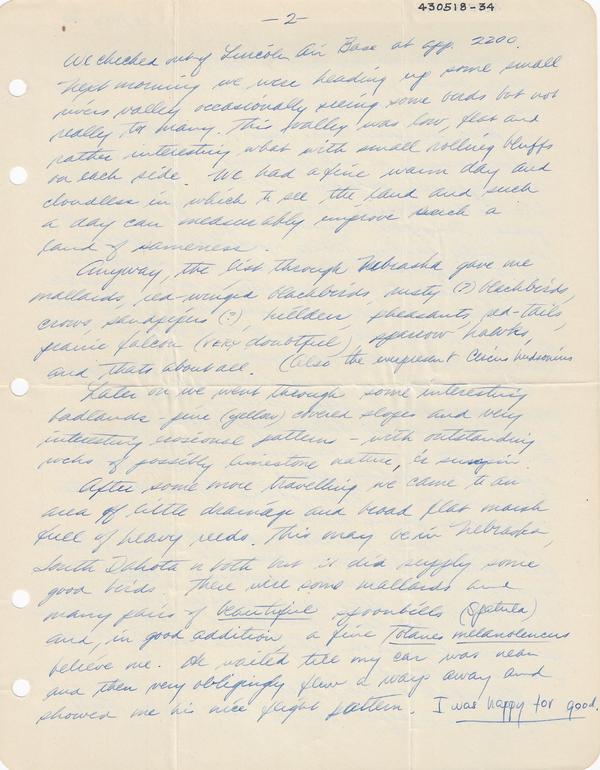 430518-34
- 2 -
We checked out of Lincoln Air Base at app. 2200.
Next morning we were heading up some small
rivers valley occasionally seeing some birds but not
really too many. This valley was low, flat and
rather interesting what with small rolling bluffs
on each side. We had a fine warm day and
cloudless in which to see the land and such
a day can measurably improve such a
land of sameness.
Anyway, the list through Nebraska gave me
mallards, red-winged blackbirds, rusty (?) blackbirds,
crows, sandpipers (?), killdeer, pheasants, red-tails,
prairie falcon (VERY doubtful), sparrow hawks,
and thats about all. (Also the everpresent Circus hudsonius
Later on we went through some interesting
badlands - pine (yellow) covered slopes and very
interesting erosional pattern - with outstanding
rocks of possibly limestone nature,
After some more travelling we came to an
area of little drainage and broad flat marsh
full of heavy reeds. This may be in Nebraska,
South Dakota or both but it did supply some
good birds. There were some mallards and
many pairs of beautiful spoonbills (Spatula)
and, in good addition, a fine Totanus melanoleucus
believe me. He waited till my car was near
and then very obligingly flew a ways away and
showed me his nice flight pattern. I was happy for good.